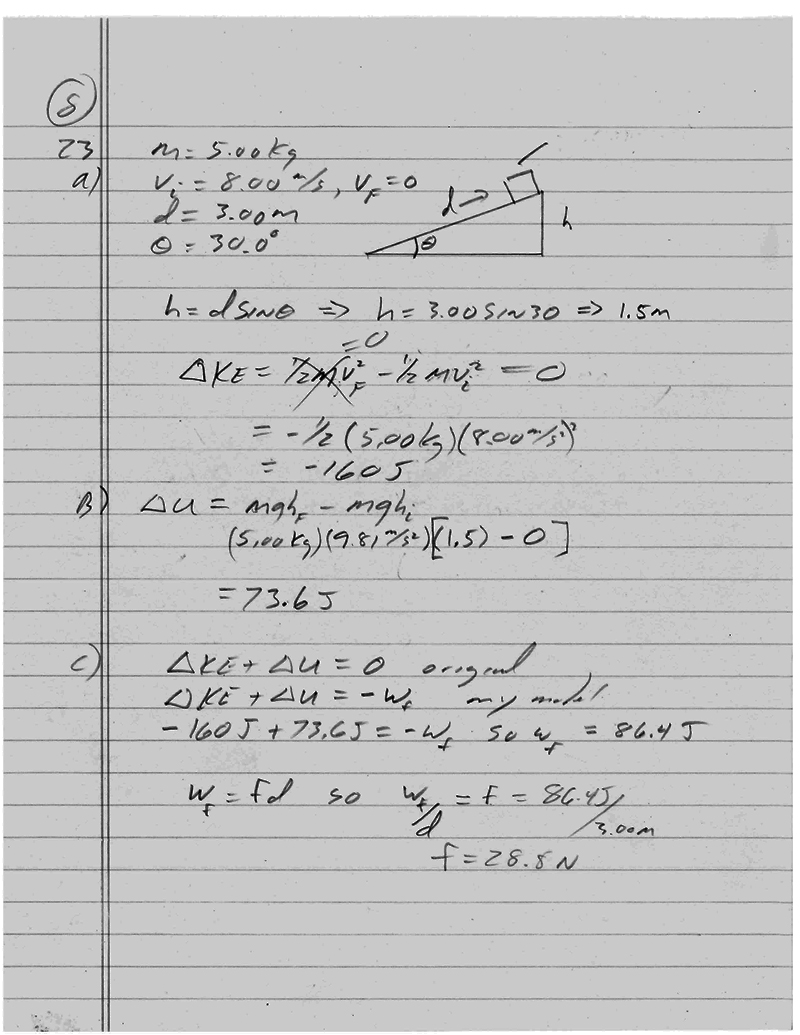 8
23 m = 5.00 kg
a) Vi = 8.00 m/s, VF = 0
d = 3.00 m
θ = 30.0°
d → h
θ
h = d sinθ => h = 3.00 sin 30 => 1.5 m
= 0
ΔKE = 1/2 m VF² - 1/2 m vi² = 0
= -1/2 (5.00 kg)(8.00 m/s²)²
= -160 J
B) ΔU = mghF - mghi
(5.00 kg)(9.81 m/s²)[(1.5) - 0]
= 73.6 J
C) ΔKE + ΔU = 0 original
ΔKE + ΔU = -Wf my model
-160 J + 73.6 J = -Wf so wf = 86.4 J
Wf = fd so Wf/d = f = 86.4 J/3.00 m
f = 28.8 N